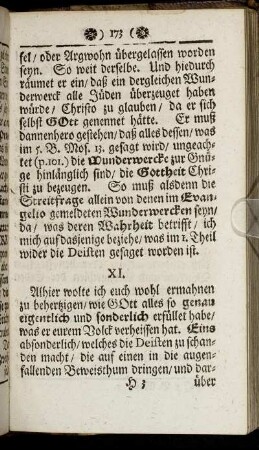 ) 173 (
fel/ oder Argwohn übergelassen worden
seyn. So weit derselbe. Und hiedurch
räumet er ein/ daß ein dergleichen Wun-
derwerck alle Jüden überzeuget haben
würde/ Christo zu glauben/ da er sich
selbst GOtt genennet hätte. Er muß
dannenhero gestehen/ daß alles dessen/ was
im 5. B. Mos. 13. gesagt wird/ ungeach-
tet (p. 101.) die Wunderwercke zur Gnü-
ge hinlänglich sind/ die Gottheit Chri-
sti zu bezeugen. So muß alsdenn die
Streitfrage allein von denen im Evan-
gelio gemeldeten Wunderwercken seyn/
da/ was deren Wahrheit betrifft/ ich
mich auf dasjenige beziehe/ was im 1. Theil
wider die Deisten gesaget worden ist.
XI.
Alhier wolte ich euch wohl ermahnen
zu behertzigen/ wie GOtt alles so genau
eigentlich und sonderlich erfüllet habe/
was er eurem Volck verheissen hat. Eins
absonderlich/ welches die Deisten zu schan-
den macht/ die auf einen in die augen-
fallenden Beweisthum dringen/ und dar-
H 3 über